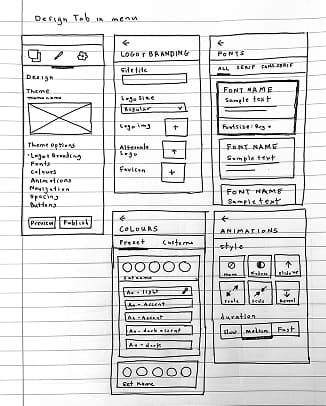 Design Tab in menu
Design
Theme
Theme Options
Logo & Branding
Fonts
Colours
Animations
Navigation
Spacing
Buttons
Preview
Publish
LOGO & BRANDING
Site title
Logo Size
Regular
Logo img
Alternate
Logo
Favicon
FONTS
ALL SERIF SANS SERIF
FONT NAME
Sample text
Font size: Reg
FONT NAME
Sample text
FONT NAME
Sample text
COLOURS
Preset Custom
Set name
Aa - light
Aa - Accent
Aa - Accent
Aa - dark accent
Aa - dark
Set name
ANIMATIONS
Style
None
Slide up
Scale
Scale
Reveal
duration
Slow
Medium
Fast